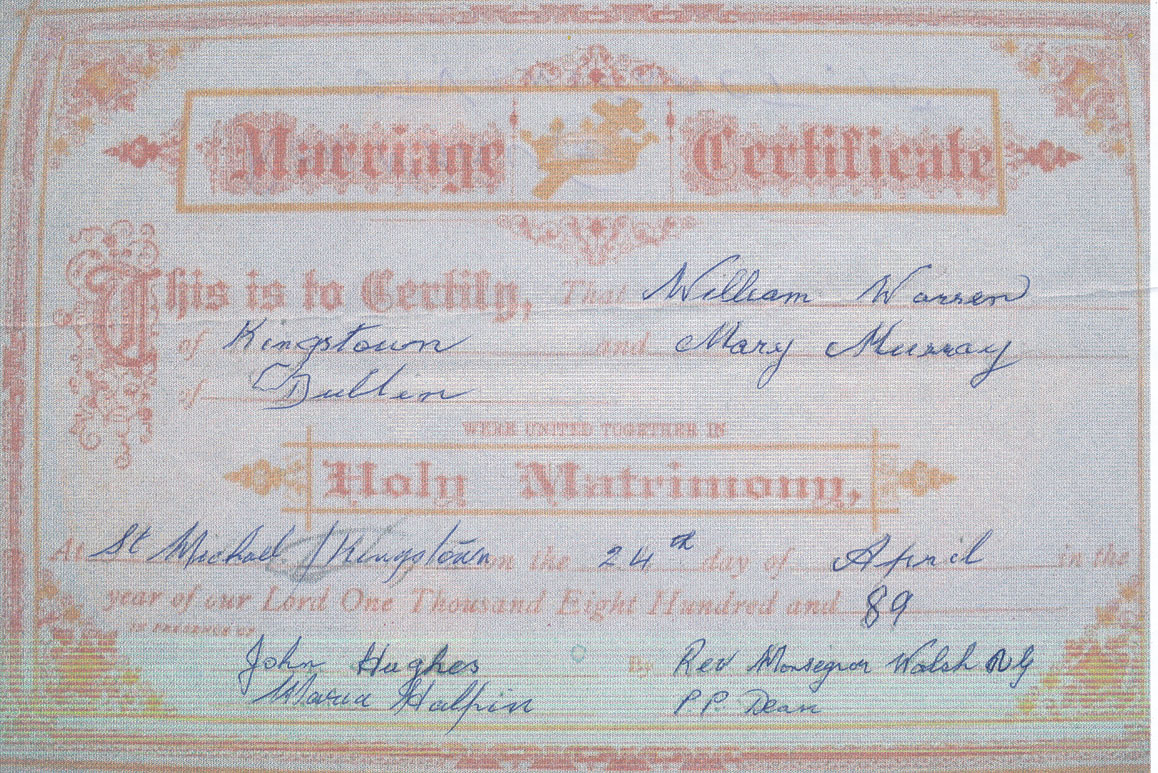 Marriage Certificate
This is to Certify, That William Warren
of Kingstown and Mary Murray
of Dublin
WERE UNITED TOGETHER IN
Holy Matrimony,
At St Michael / Kingstown on the 24th day of April in the
year of our Lord One Thousand Eight Hundred and 89
IN PRESENCE OF
John Hughes By Rev Monsegnor Walsh
Maria Halpin P.P. Dean